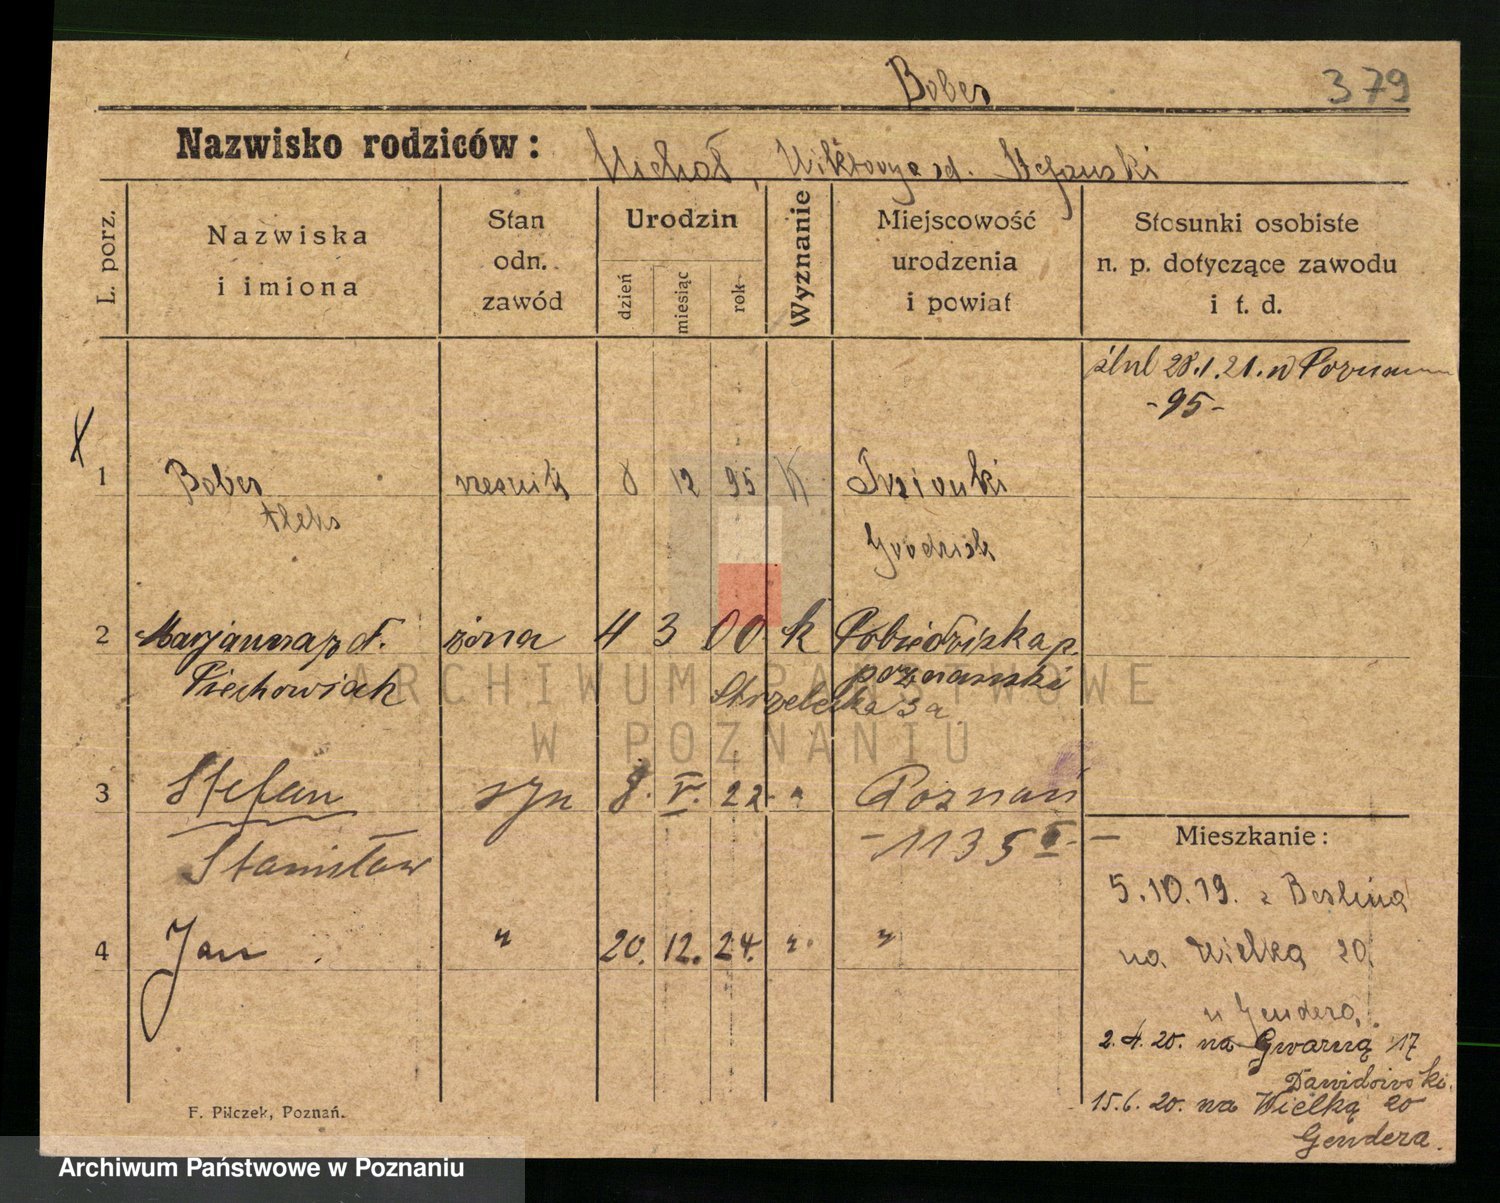 Bober 379
Nazwisko rodziców: Michał, Wiktorya zd. Stefański
L. porz.
Nazwiska
i imiona
Stan
odn.
zawód
Urodzin
dzień
miesiąc
rok
Wyznanie
Miejscowość
urodzenia
i powiat
Stosunki osobiste
n. p. dotyczące zawodu
i t. d.
ślub 28.1.21. w Poznaniu
-95-
1 Bober rzeźnik 8 12 95 K
Aleks Grodzisk
2 Marjanna żona 4 3 00 k Pobiedziska p.
Piechowiak poznański
Strzelecka 3a
3 Stefan syn 8. V. 22 " Poznań
Stanisław - 1135 -
4 Jan " 20. 12. 24. " "
Mieszkanie:
5.10.19. z Berlina
na Wielką 20
u Gendera
2.4.20. na Gwarną 17
Dawidowski.
15.6.20. na Wielką 20
Gendera.
F. Pilczek, Poznań.
ARCHIWUM PAŃSTWOWE
W POZNANIU
Archiwum Państwowe w Poznaniu